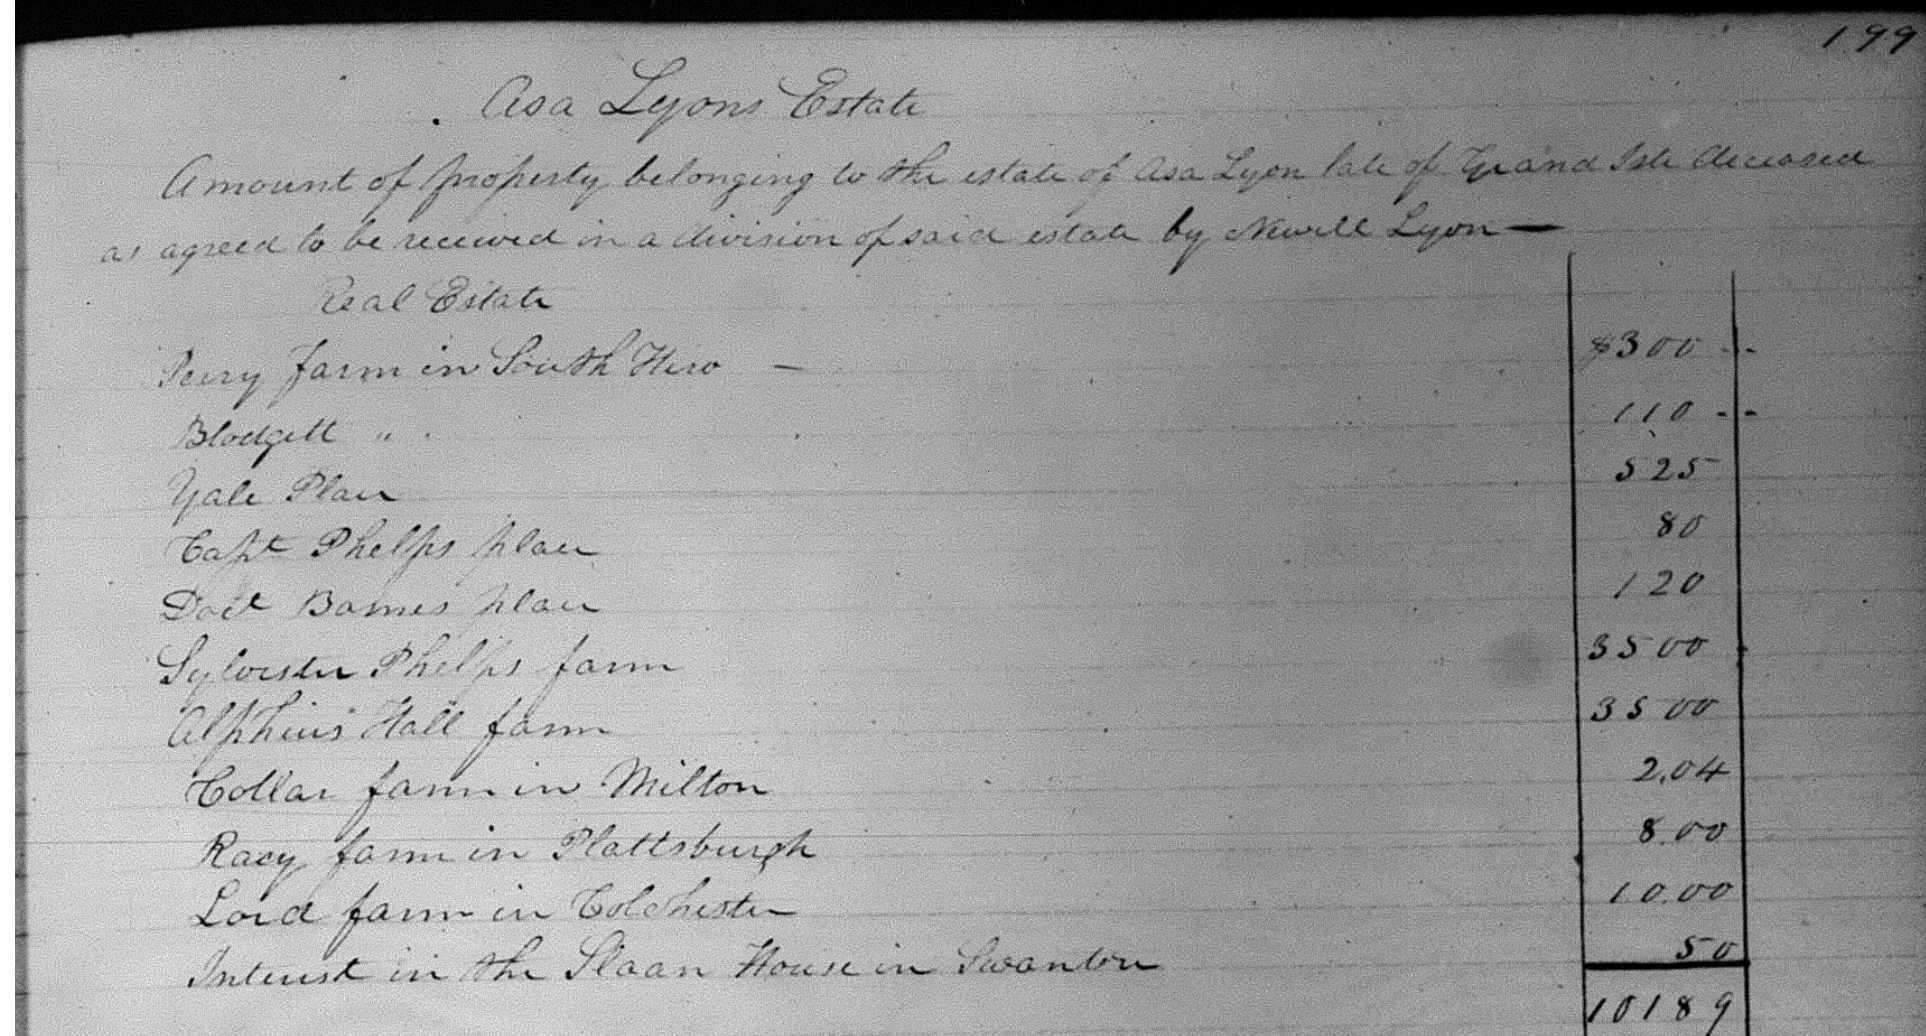 199
Asa Lyons Estate
Amount of property belonging to the estate of Asa Lyon late of Grand Isle deceased
as agreed to be received in a division of said estate by Newell Lyon —
Real Estate
Perry farm in South Hero — $300 - -
Blodgett " 110 - -
Yale Place 525
Capt Phelps place 80
Doct Barnes place 120
Sylvester Phelps farm 3500
Alpheus Hall farm 3500
Collar farm in Milton 2,04
Racy farm in Plattsburgh 8.00
Lord farm in Colchester 10.00
Interest in the Slaan House in Swanton 50
10189